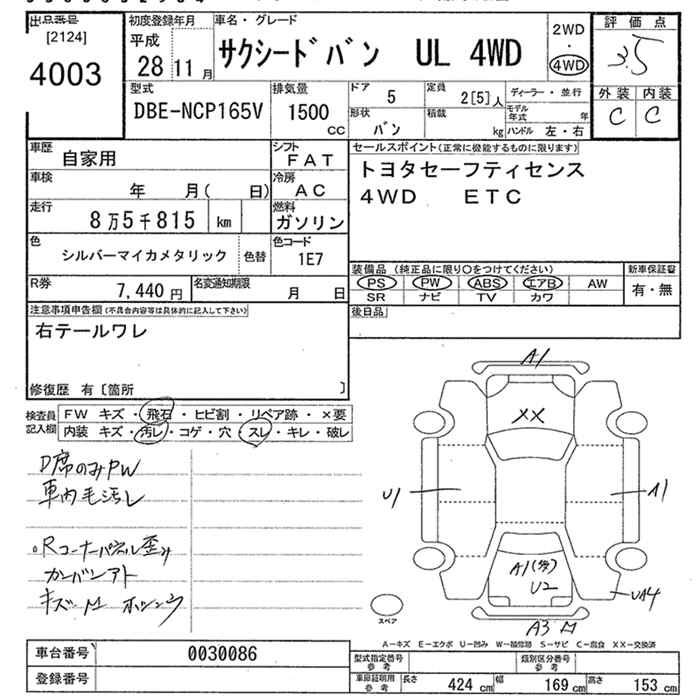 出品番号
[2124]
4003
初度登録年月
平成
28 11月
車名・グレード
サクシードバン UL 4WD
2WD
・
4WD
評価点
3.5
外装 内装
C C
型式
DBE-NCP165V
排気量
1500
cc
ドア 5
定員 2[5]人
ディーラー・並行
形状 バン
積載 kg
モデル年式 年
ハンドル 左・右
車歴 自家用
シフト FAT
セールスポイント(正常に機能するものに限ります)
トヨタセーフティセンス
4WD ETC
車検 年 月( 日)
冷房 AC
走行 8万5千815 km
燃料 ガソリン
色 シルバーマイカメタリック 色替
色コード 1E7
装備品(純正品に限り○をつけてください)
新車保証書
PS PW ABS エアB AW
有・無
SR ナビ TV カワ
R券 7,440円
名変通知期限 月 日
後日品
注意事項申告欄(不具合内容等は具体的に記入して下さい)
右テールワレ
修復歴 有〔箇所 〕
検査員記入欄
FW キズ・飛石・ヒビ割・リペア跡・×要
内装 キズ・汚レ・コゲ・穴・スレ・キレ・破レ
D席のみPW
車内毛汚レ
。Rコーナーパネル歪み
カンバンアト
A1
XX
U1
A1
A1(多)
U2
UA4
A3
スペア
A=キズ E=エクボ U=凹み W=補修跡 S=サビ C=腐食 XX=交換済
車台番号 0030086
登録番号
型式指定番号 参考
類別区分番号 参考
車庫証明用 参考
長さ 424cm
幅 169cm
高さ 153cm